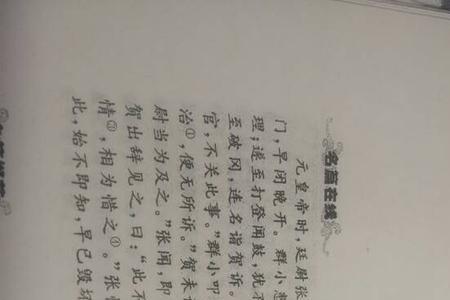 名篇在线
元皇帝时，廷尉张
门，早闭晚开。群小患
理；遂至打登闻鼓，犹不
至破冈，连名诣贺诉。
官，不关此事。”群小叩
治①，便无所诉。”贺未
尉当为及之。”张闻，即
贺出辞见之，曰：“此不
情③，相为惜之④。”张
此，始不即知，早已毁坏